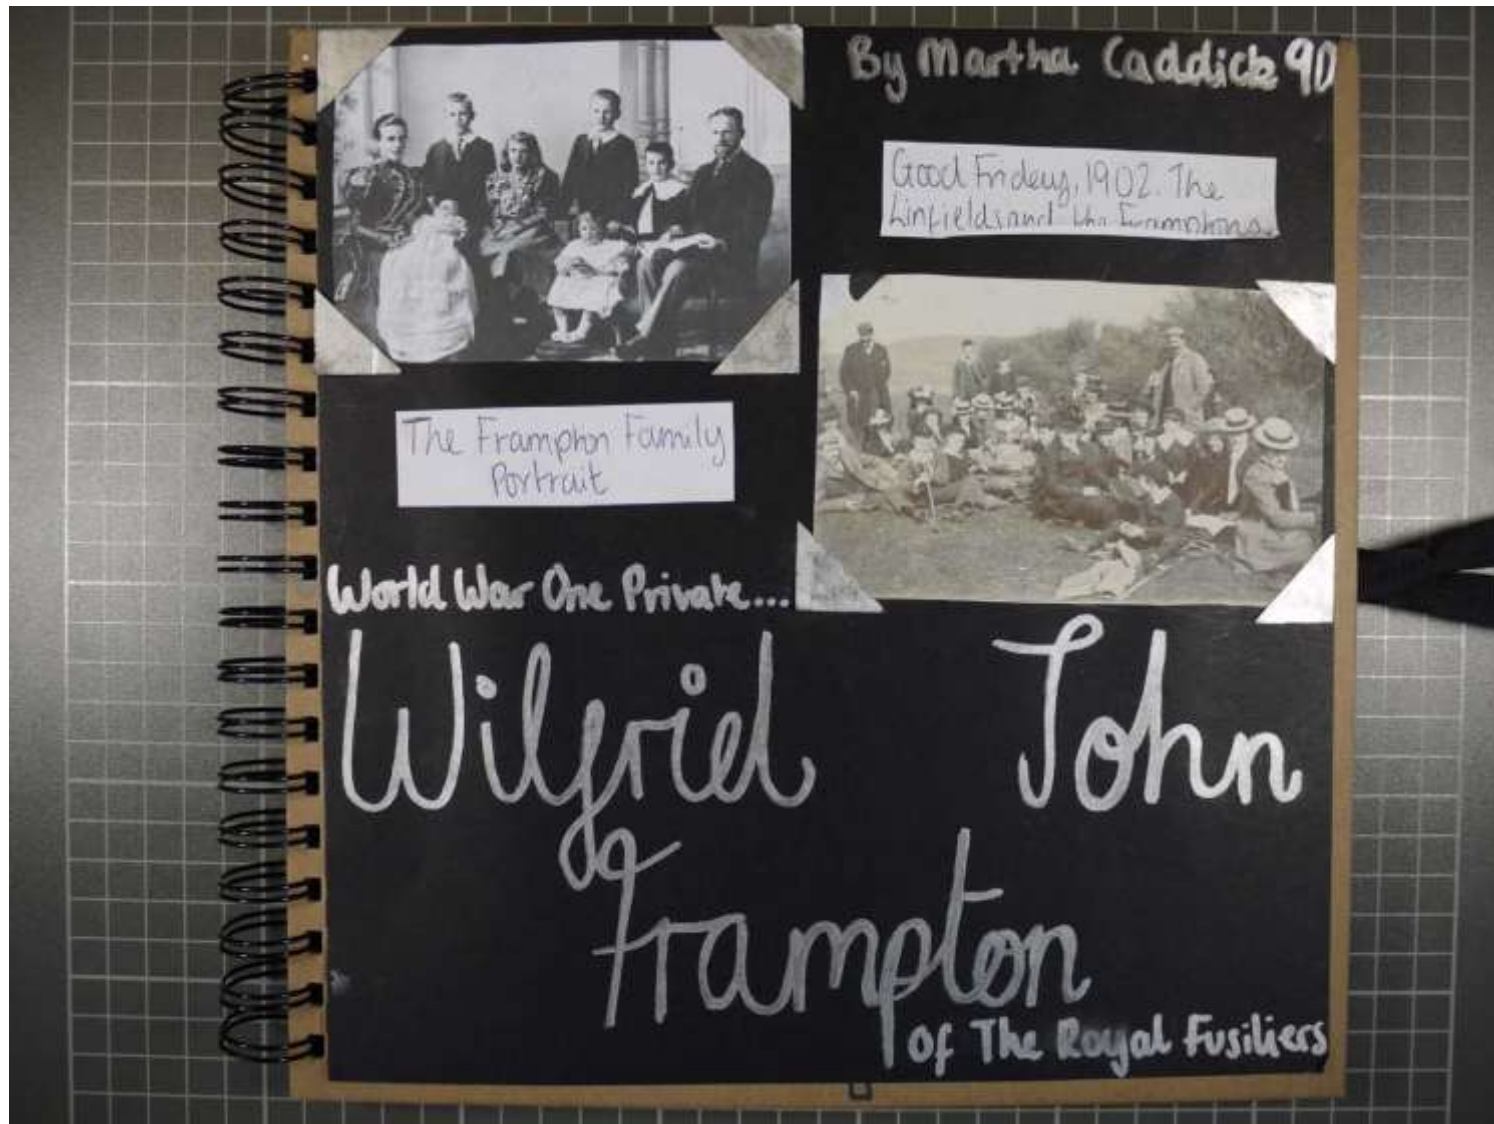 By Martha Caddick 9D
Good Friday, 1902. The
Linfields and the Framptons.
The Frampton Family
Portrait
World War One Private...
Wilfrid John
Frampton
of The Royal Fusiliers